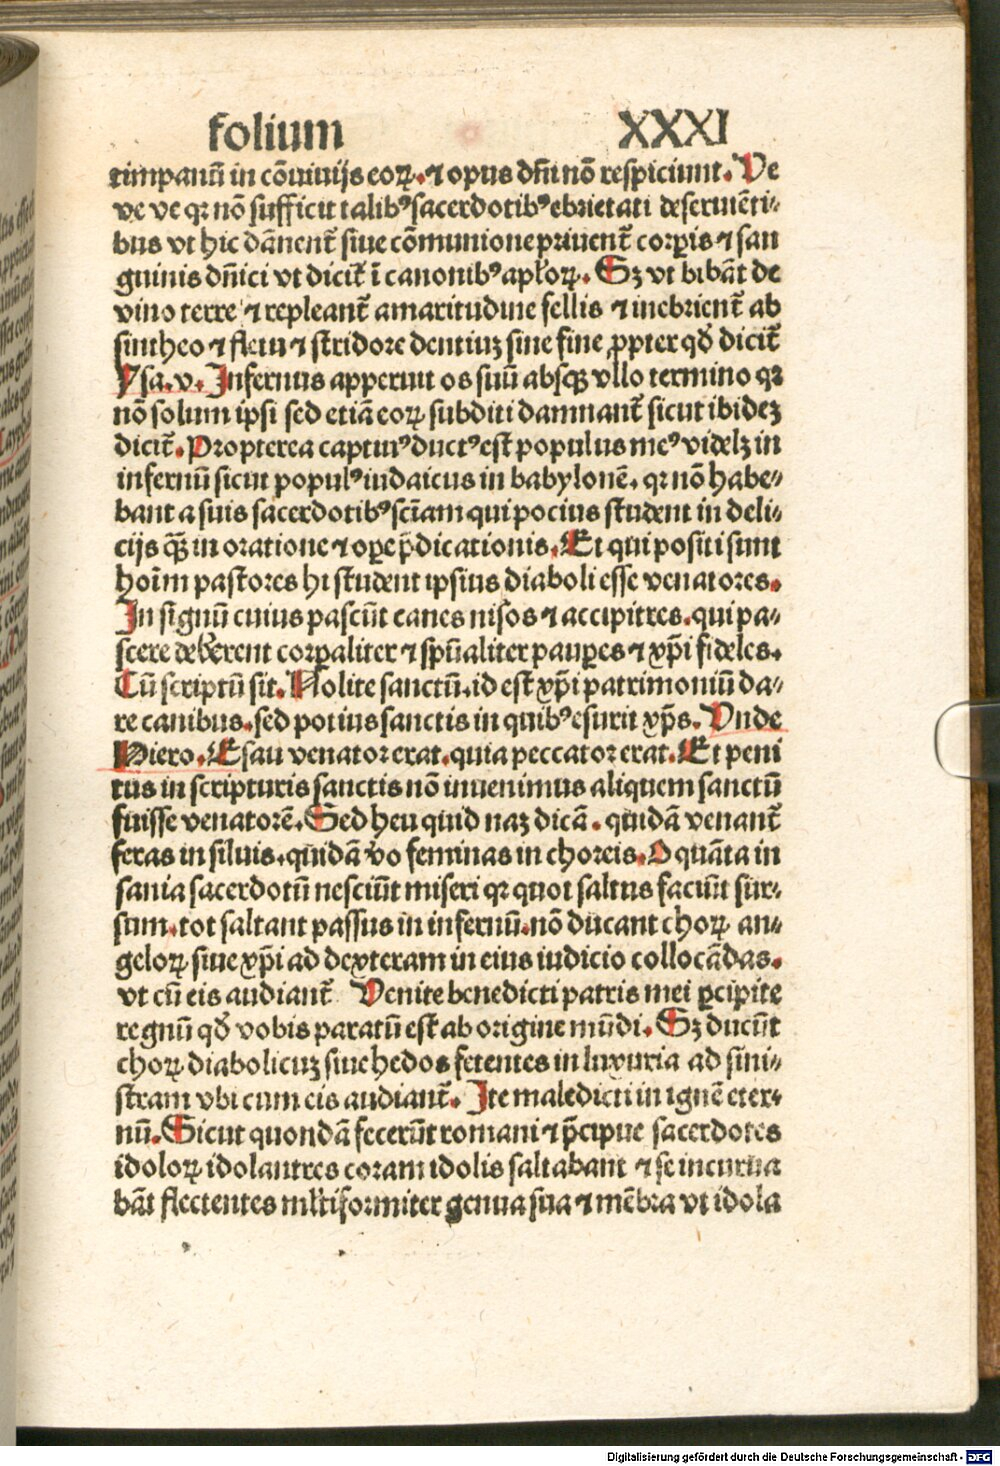 folium XXXI
timpanū in cōuiuijs eoꝝ. ⁊ opus dn̄i nō respiciunt. Ve
ve ve qꝛ nō sufficit talibꝰ sacerdotibꝰ ebrietati deseruiēti⸗
bus vt hic dānent᷑ siue cōmunione priuent᷑ corꝑis ⁊ san
guinis dn̄ici vt dicit᷑ ī canonibꝰ apl'oꝝ. Sꝫ vt bibāt de
vino terre ⁊ repleant᷑ amaritudine fellis ⁊ inebrient᷑ ab
sintheo ⁊ fletu ⁊ stridore dentiuꝫ sine fine ꝓpter qđ dicit᷑
Ysa. v. Infernus apperuit os suū absqꝫ vllo termino qꝛ
nō solum ipsi sed etiā eoꝝ subditi damnant᷑ sicut ibideꝫ
dicit᷑. Propterea captiuꝰ ductꝰ est populus meꝰ videlꝫ in
infernū sicut populꝰ iudaicus in babylonē. qꝛ nō habe⸗
bant a suis sacerdotibꝰ scīam qui pocius student in deli⸗
cijs qꝫ̄ in oratione ⁊ oꝑe p̄dicationis. Et qui positi sunt
hoīm pastores hi student ipsius diaboli esse venatores.
In signū cuius pascūt canes nisos ⁊ accipitres. qui pa⸗
scere deberent corꝑaliter ⁊ spūaliter pauꝑes ⁊ xp̄i fideles.
Cū scriptū sit. Nolite sanctū. id est xp̄i patrimoniū da⸗
re canibus. sed potius sanctis in quibꝰ esurit xp̄s. Vnde
Hiero. Esau venator erat. quia peccator erat. Et peni
tus in scripturis sanctis nō inuenimus aliquem sanctū
fuisse venatorē. Sed heu quid naꝫ dicā. quidā venant᷑
feras in siluis. quidā v̄o feminas in choreis. O quāta in
sania sacerdotū nesciūt miseri qꝛ quot saltus faciūt sur⸗
sum. tot saltant passus in infernū. nō ducant choꝝ an⸗
geloꝝ siue xp̄i ad dexteram in eius iudicio collocādas.
vt cū eis audiant᷑ Venite benedicti patris mei ꝑcipite
regnū qđ vobis paratū est ab origine mūdi. Sꝫ ducūt
choꝝ diabolicuꝫ siue hedos fetentes in luxuria ad sini⸗
stram vbi cum eis audiant᷑. Ite maledicti in ignē eter⸗
nū. Sicut quondā fecerūt romani ⁊ p̄cipue sacerdotes
idoloꝝ idolantres coram idolis saltabant ⁊ se incurua
bāt flectentes ml'tiformiter genua sua ⁊ mēbra vt idola
Digitalisierung gefördert durch die Deutsche Forschungsgemeinschaft - DFG